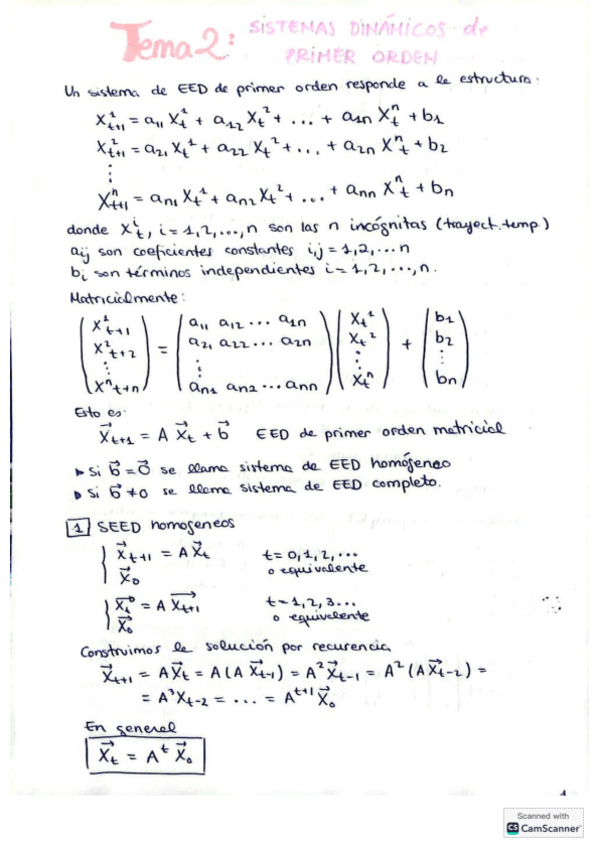 Tema 2: SISTEMAS DINÁMICOS de
PRIMER ORDEN
Un sistema de EED de primer orden responde a la estructura:
X¹ₜ₊₁ = a₁₁ Xₜ¹ + a₁₂ Xₜ² + ... + a₁ₙ Xₜⁿ + b₁
X²ₜ₊₁ = a₂₁ Xₜ¹ + a₂₂ Xₜ² + ... + a₂ₙ Xₜⁿ + b₂
⋮
Xⁿₜ₊₁ = aₙ₁ Xₜ¹ + aₙ₂ Xₜ² + ... + aₙₙ Xₜⁿ + bₙ
donde Xⁱₜ, i = 1,2,...,n son las n incógnitas (trayect. temp.)
aᵢⱼ son coeficientes constantes i,j = 1,2,...n
bᵢ son términos independientes i = 1,2,...,n.
Matricialmente:
(X¹ₜ₊₁) = (a₁₁ a₁₂ ... a₁ₙ) (Xₜ¹) + (b₁)
(X²ₜ₊₂) (a₂₁ a₂₂ ... a₂ₙ) (Xₜ²) (b₂)
(⋮) (⋮) (⋮) (⋮)
(Xⁿₜ₊ₙ) (aₙ₁ aₙ₂ ... aₙₙ) (Xₜⁿ) (bₙ)
Esto es:
X⃗ₜ₊₁ = A X⃗ₜ + b⃗ EED de primer orden matricial
▸ Si b⃗ = 0⃗ se llama sistema de EED homógeneo
▸ Si b⃗ ≠ 0 se llama sistema de EED completo.
1 SEED homogeneos
{ X⃗ₜ₊₁ = A X⃗ₜ t = 0,1,2,...
X⃗₀ o equivalente
{ X⃗ₜ = A X⃗ₜ₊₁ t = 1,2,3...
X⃗₀ o equivalente
Construimos la solución por recurencia
X⃗ₜ₊₁ = A X⃗ₜ = A (A X⃗ₜ₋₁) = A² X⃗ₜ₋₁ = A² (A X⃗ₜ₋₂) =
= A³ Xₜ₋₂ = ... = Aᵗ⁺¹ X⃗₀
En general
X⃗ₜ = Aᵗ X⃗₀
1
Scanned with
CS CamScanner